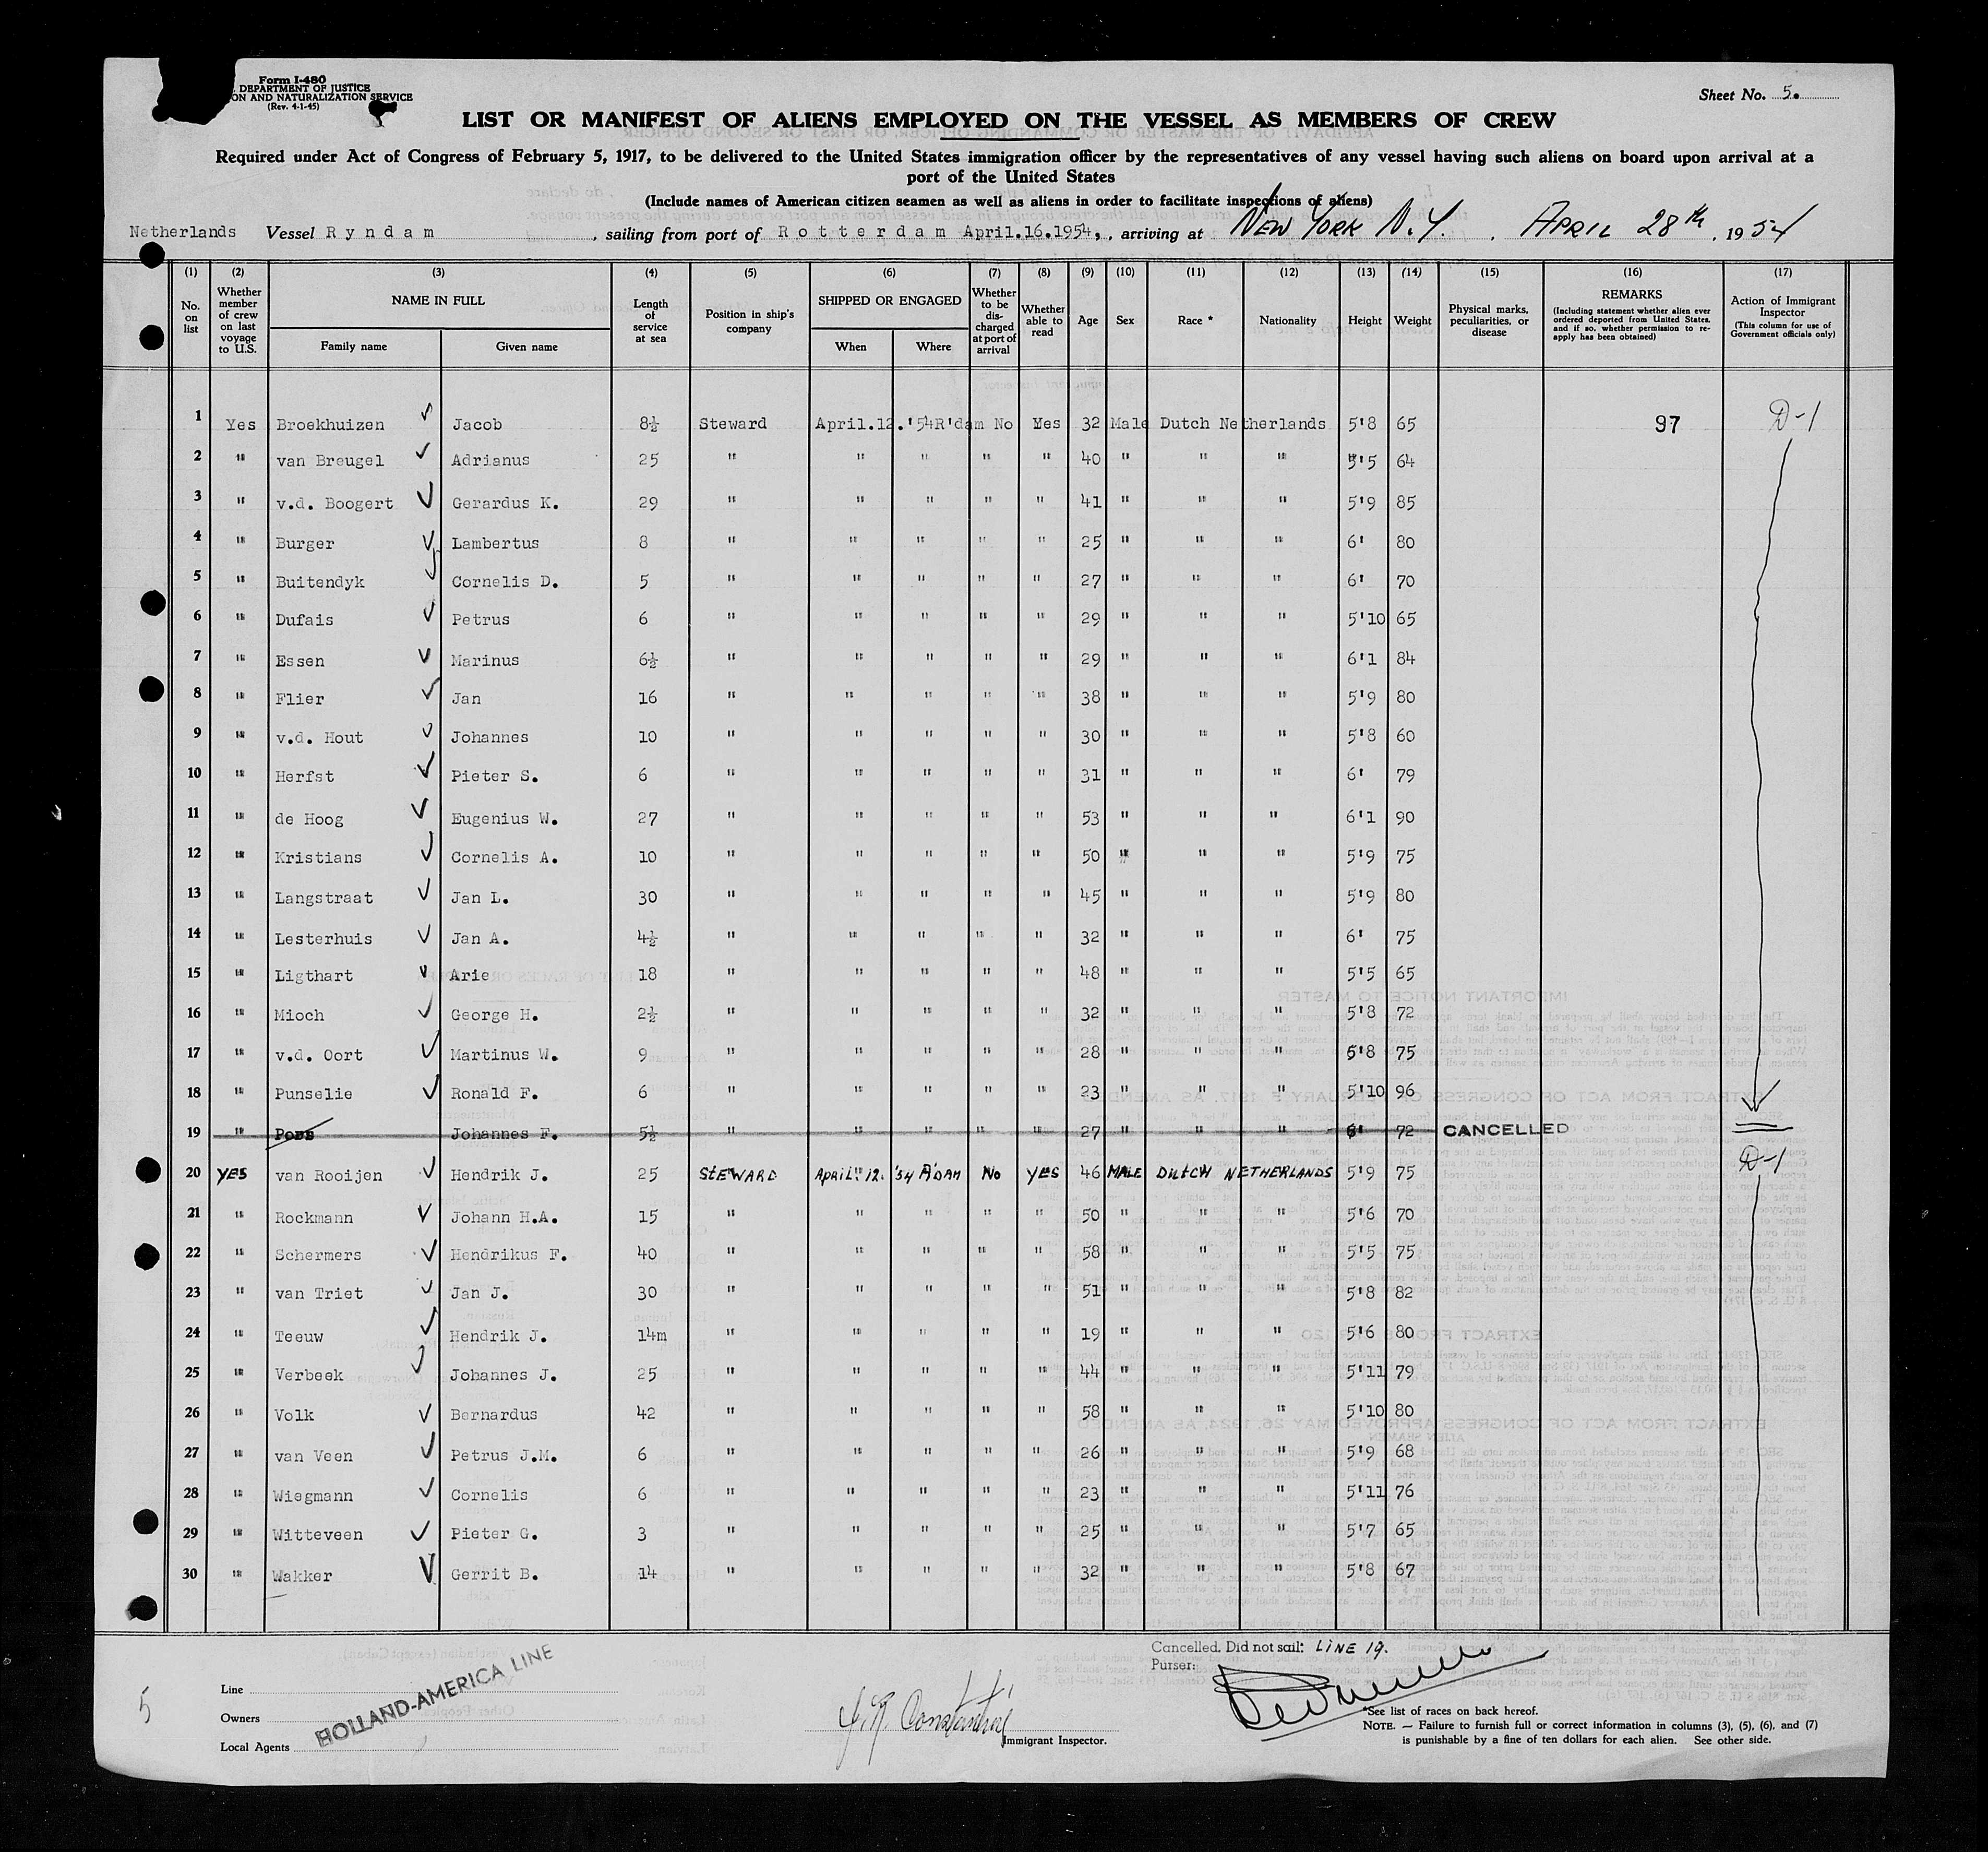 Form I-480
DEPARTMENT OF JUSTICE
ON AND NATURALIZATION SERVICE
(Rev. 4-1-45)
Sheet No. 5.
LIST OR MANIFEST OF ALIENS EMPLOYED ON THE VESSEL AS MEMBERS OF CREW
Required under Act of Congress of February 5, 1917, to be delivered to the United States immigration officer by the representatives of any vessel having such aliens on board upon arrival at a
port of the United States
(Include names of American citizen seamen as well as aliens in order to facilitate inspections of aliens)
Netherlands Vessel Ryndam, sailing from port of Rotterdam April.16.1954, arriving at NEW YORK N.Y. APRIL 28th, 1954
(1) (2) (3) (4) (5) (6) (7) (8) (9) (10) (11) (12) (13) (14) (15) (16) (17)
No. on list
Whether member of crew on last voyage to U.S.
NAME IN FULL
Family name Given name
Length of service at sea
Position in ship's company
SHIPPED OR ENGAGED
When Where
Whether to be discharged at port of arrival
Whether able to read
Age
Sex
Race *
Nationality
Height
Weight
Physical marks, peculiarities, or disease
REMARKS
(Including statement whether alien ever ordered deported from United States, and if so, whether permission to re-apply has been obtained)
Action of Immigrant Inspector
(This column for use of Government officials only)
1 Yes Broekhuizen Jacob 8½ Steward April.12.'54 R'dam No Yes 32 Male Dutch Netherlands 5'8 65 97 D-1
2 " van Breugel Adrianus 25 " " " " " 40 " " " 5'5 64
3 " v.d. Boogert Gerardus K. 29 " " " " " 41 " " " 5'9 85
4 " Burger Lambertus 8 " " " " " 25 " " " 6' 80
5 " Buitendyk Cornelis D. 5 " " " " " 27 " " " 6' 70
6 " Dufais Petrus 6 " " " " " 29 " " " 5'10 65
7 " Essen Marinus 6½ " " " " " 29 " " " 6'1 84
8 " Flier Jan 16 " " " " " 38 " " " 5'9 80
9 " v.d. Hout Johannes 10 " " " " " 30 " " " 5'8 60
10 " Herfst Pieter S. 6 " " " " " 31 " " " 6' 79
11 " de Hoog Eugenius W. 27 " " " " " 53 " " " 6'1 90
12 " Kristians Cornelis A. 10 " " " " " 50 " " " 5'9 75
13 " Langstraat Jan L. 30 " " " " " 45 " " " 5'9 80
14 " Lesterhuis Jan A. 4½ " " " " " 32 " " " 6' 75
15 " Ligthart Arie 18 " " " " " 48 " " " 5'5 65
16 " Mioch George H. 2½ " " " " " 32 " " " 5'8 72
17 " v.d. Oort Martinus W. 9 " " " " " 28 " " " 5'8 75
18 " Punselie Ronald F. 6 " " " " " 23 " " " 5'10 96
19 " Johannes F. 5½ " " " " " 27 " " " 6' 72 CANCELLED
20 YES van Rooijen Hendrik J. 25 STEWARD APRIL 12. '54 R'DAM No YES 46 MALE DUTCH NETHERLANDS 5'9 75 D-1
21 " Rockmann Johann H.A. 15 " " " " " 50 " " " 5'6 70
22 " Schermers Hendrikus F. 40 " " " " " 58 " " " 5'5 75
23 " van Triet Jan J. 30 " " " " " 51 " " " 5'8 82
24 " Teeuw Hendrik J. 14m " " " " " 19 " " " 5'6 80
25 " Verbeek Johannes J. 25 " " " " " 44 " " " 5'11 79
26 " Volk Bernardus 42 " " " " " 58 " " " 5'10 80
27 " van Veen Petrus J.M. 6 " " " " " 26 " " " 5'9 68
28 " Wiegmann Cornelis 6 " " " " " 23 " " " 5'11 76
29 " Witteveen Pieter G. 3 " " " " " 25 " " " 5'7 65
30 " Wakker Gerrit B. 14 " " " " " 32 " " " 5'8 67
Cancelled. Did not sail: LINE 19.
Purser:
5
Line
Owners
Local Agents
HOLLAND-AMERICA LINE
Immigrant Inspector.
*See list of races on back hereof.
NOTE. — Failure to furnish full or correct information in columns (3), (5), (6), and (7)
is punishable by a fine of ten dollars for each alien. See other side.